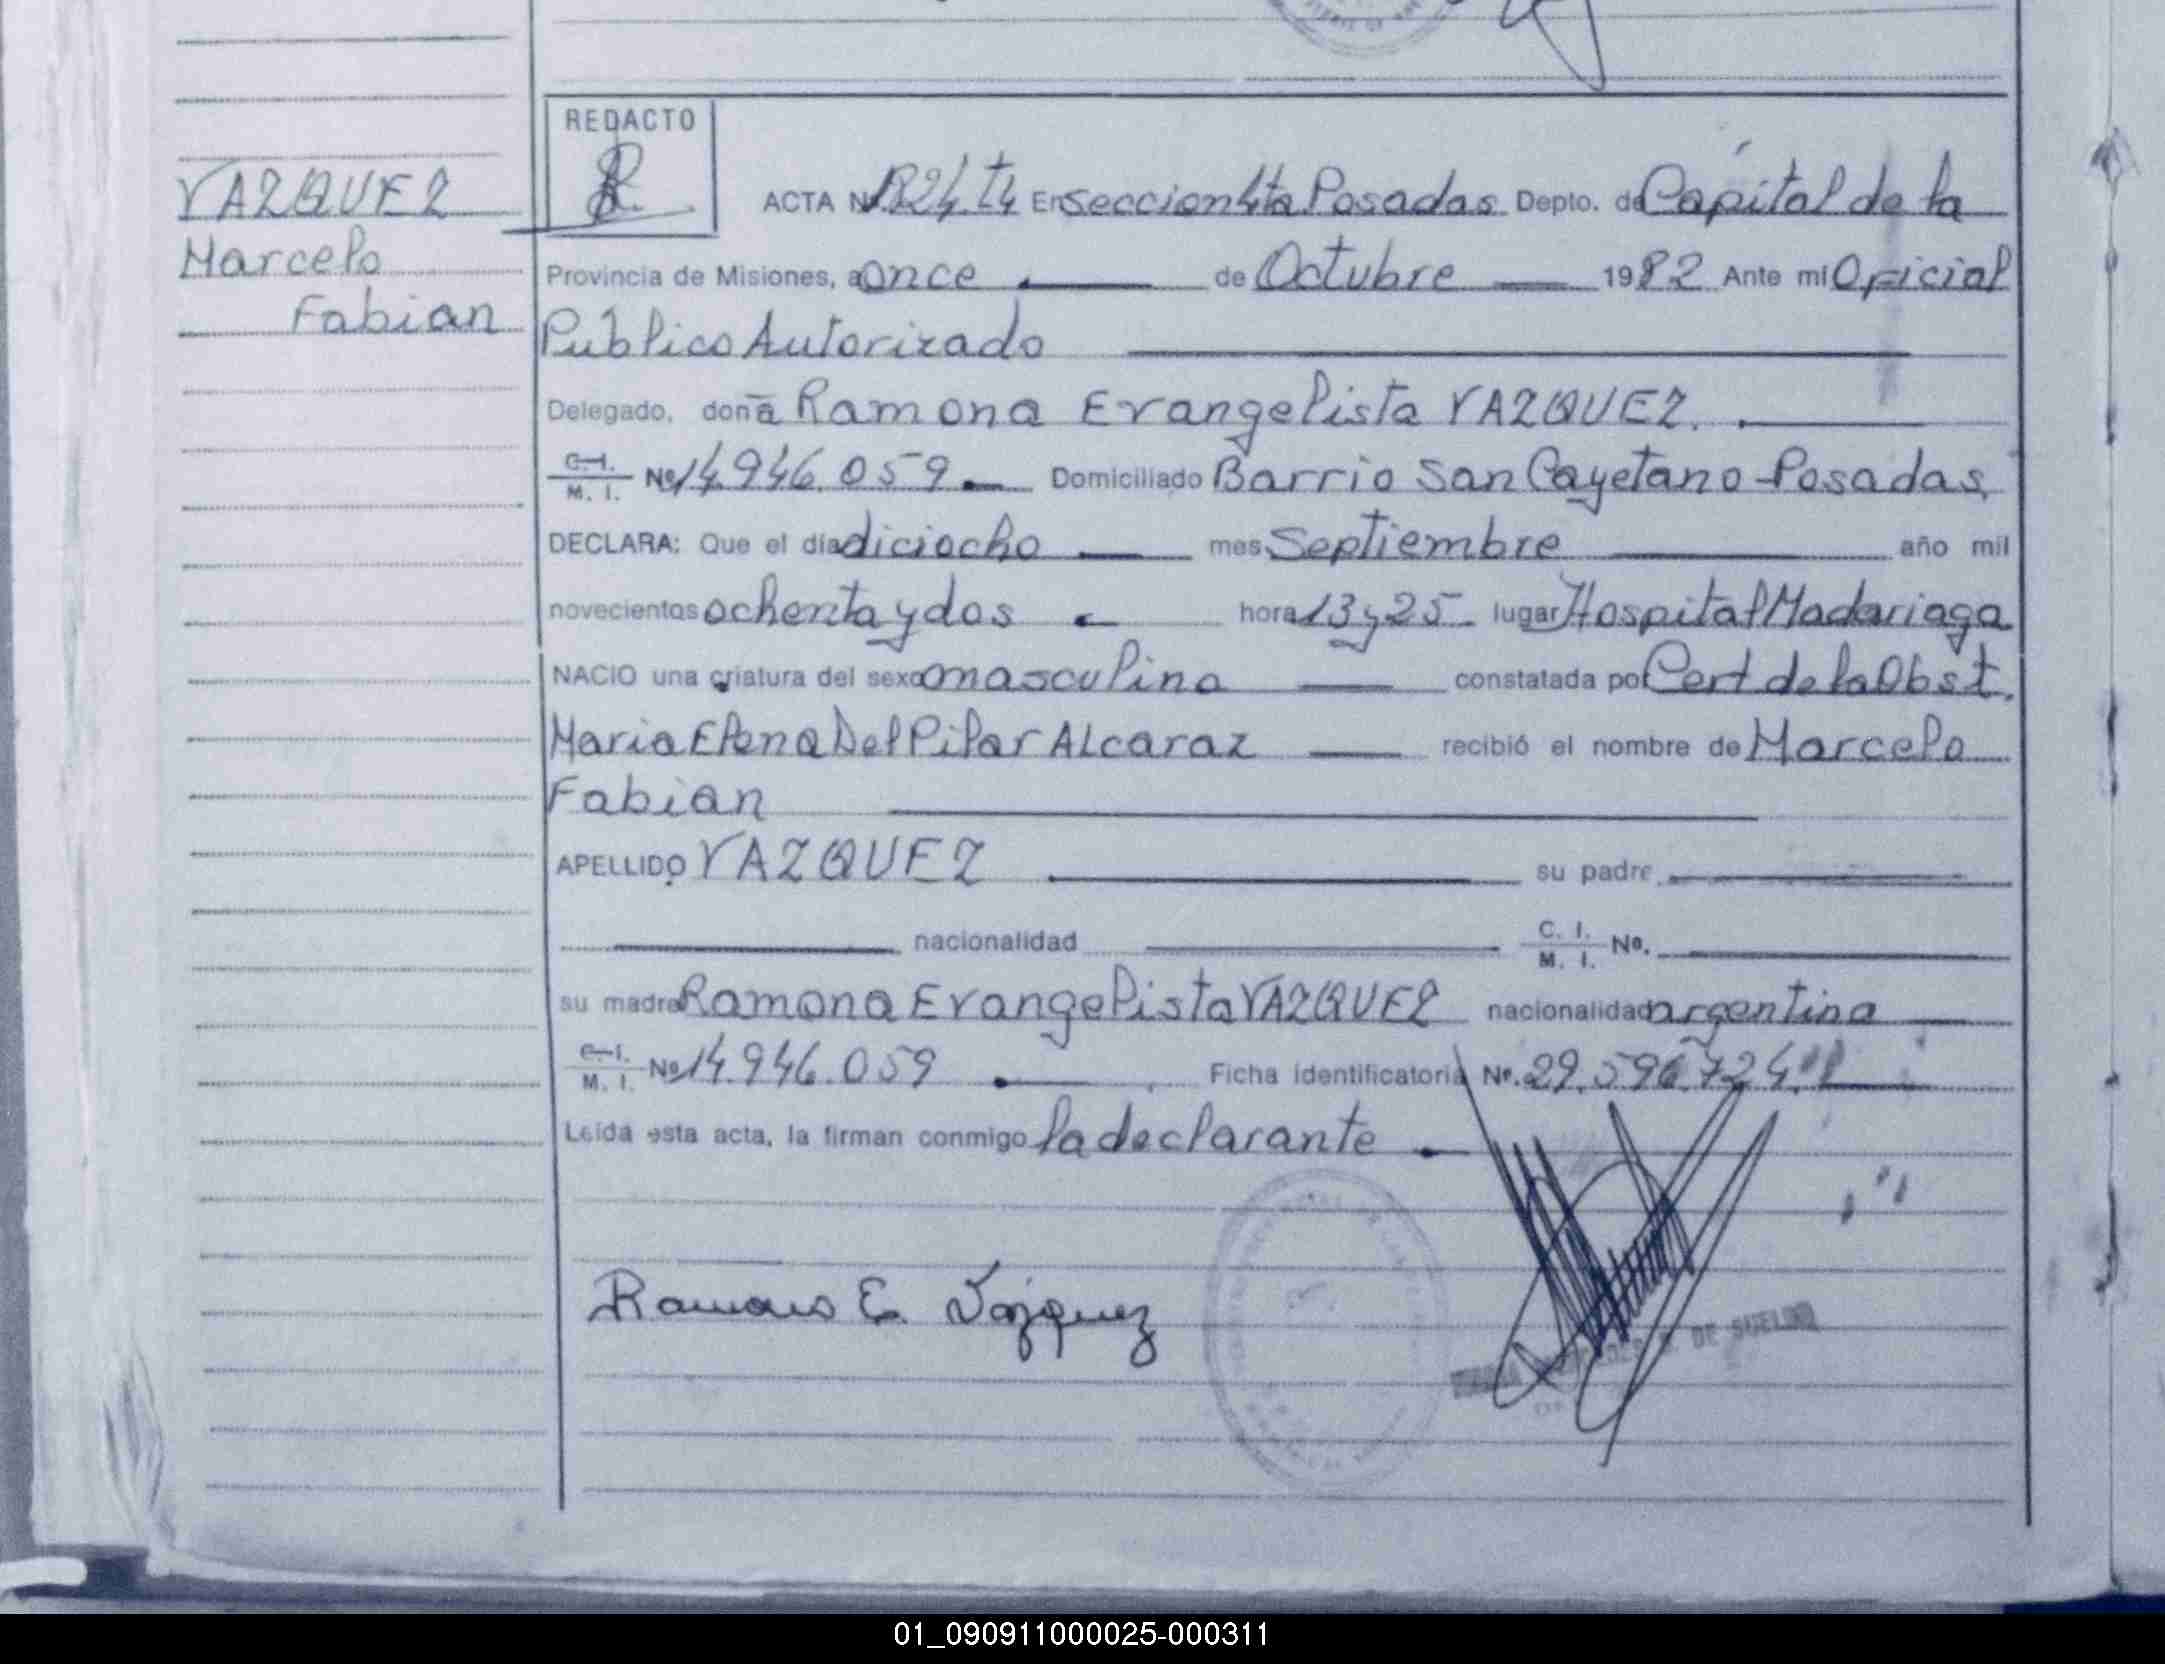 REDACTO
VAZQUEZ
Marcelo
Fabian
ACTA Nº 1824 t4 En seccion 4ta Posadas Depto. de Capital de la
Provincia de Misiones, a once de Octubre 1982 Ante mi Oficial
Público Autorizado
Delegado, doña Ramona Evangelista VAZQUEZ.
C.I. M. I. Nº 14.946.059 Domiciliado Barrio San Cayetano - Posadas,
DECLARA: Que el día diciocho mes Septiembre año mil
novecientos ochenta y dos hora 13 y 25 lugar Hospital Madariaga
NACIO una criatura del sexo masculino constatada por Cert de la Obst.
Maria Elena Del Pilar ALcaraz recibió el nombre de Marcelo
Fabian
APELLIDO VAZQUEZ su padre
nacionalidad C. I. M. I. Nº.
su madre Ramona Evangelista VAZQUEZ nacionalidad argentina
C.I. M. I. Nº 14.946.059 Ficha identificatoria Nº. 29.596.724.
Leida esta acta, la firman conmigo la declarante
Ramona E. Vázquez
DE SUELDO
01_090911000025-000311